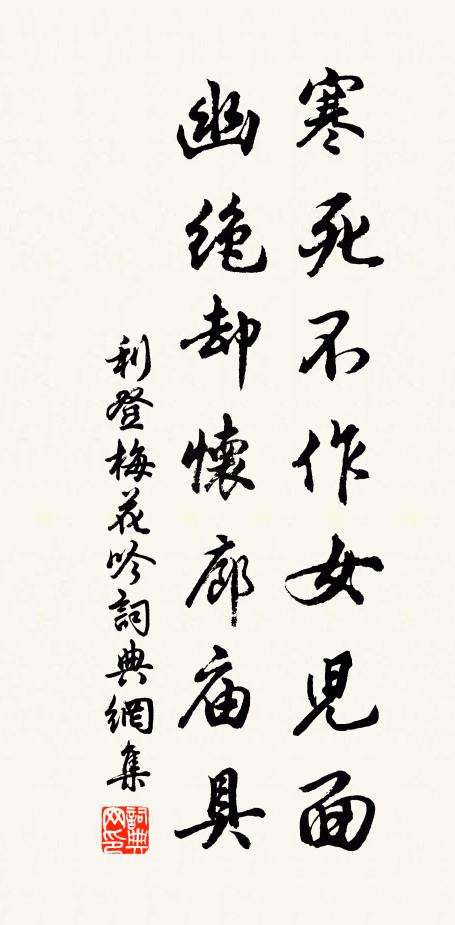 寒死不作女児面
幽绝却懷廊庙具
利登梅花吟詞典網集
詞典网印